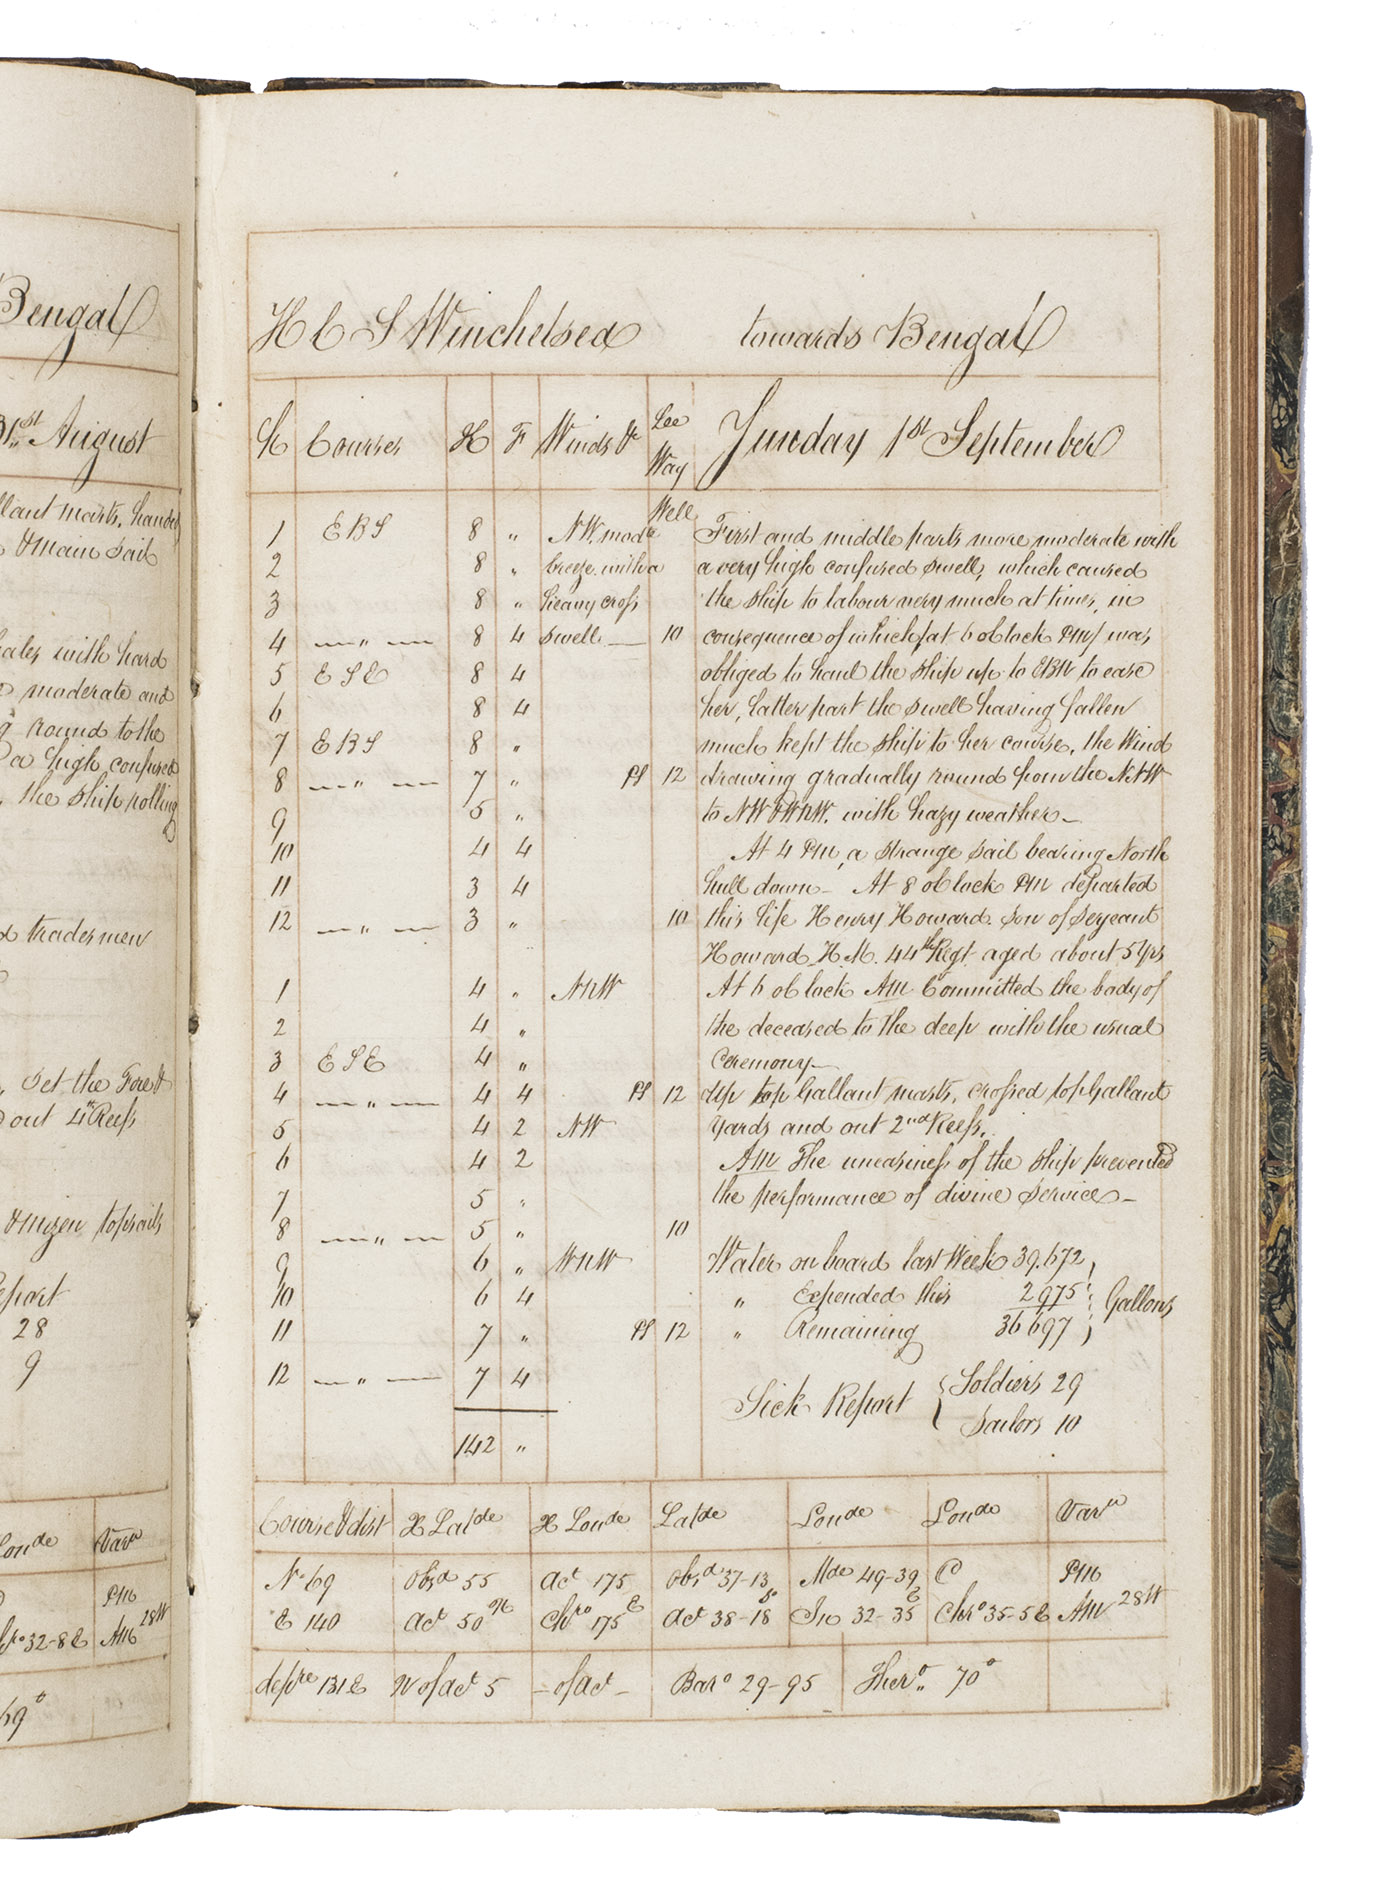 Bengal
31st August
llant masts, handed
& Main Sail
ales with hard
moderate and
round to the
a high confused
the Ship rolling
tradesmen
set the Fore &
out 4th Reefs
& mizen topsails
eport
28
9
onde Varn
PM
32-8 E AM 28W
69°
H C S Winchelsea towards Bengal
H Courses K F Winds &c Lee Way Sunday 1st September
Well
1 E B S 8 " NW. modte First and middle parts more moderate with
2 8 " breeze with a a very high confused swell, which caused
3 8 " heavy cross the ship to labour very much at times, in
4 —"— 8 4 swell — 10 consequence of which (at 6 oClock PM) was
5 E S E 8 4 obliged to haul the Ship up to EBN to ease
6 8 4 her, latter part the swell having fallen
7 E B S 8 " much kept the ship to her course, the Wind
8 —"— 7 " PS 12 drawing gradually round from the NNW
9 5 " to NW & WNW. with hazy weather —
10 4 4 At 4 PM, a strange sail bearing North
11 3 4 hull down — At 8 oClock PM departed
12 —"— 3 " 10 this life Henry Howard. Son of Serjeant
Howard H.M. 44th Regt aged about 5 Yrs
1 4 " NNW At 6 oClock AM Committed the body of
2 4 " the deceased to the deep with the usual
3 E S E 4 " Ceremony —
4 —"— 4 4 PS 12 Up top Gallant masts, crossed top Gallant
5 4 2 NW Yards and out 2nd Reefs.
6 4 2 AM The uneasiness of the ship prevented
7 5 " the performance of divine Service —
8 —"— 5 " 10
9 6 " WNW Water on board last Week 39.672
10 6 4 " Expended this 2975 Gallons
11 7 " PS 12 " Remaining 36697
12 —"— 7 4 Sick Report Soldiers 29
Sailors 10
142 "
Course & dist X Latde X Londe Latde Londe Londe Varn
N 69 Obsd 55 Act 175 Obsd 37-13 Mde 49-39 C PM
E 140 Act 50 N Chro 175 E Act 38-18 So In 32-35 E Chro 35-5 E AM 28W
depre 131 E N of Act 5 — of Act — Baro 29-95 Ther. 70°